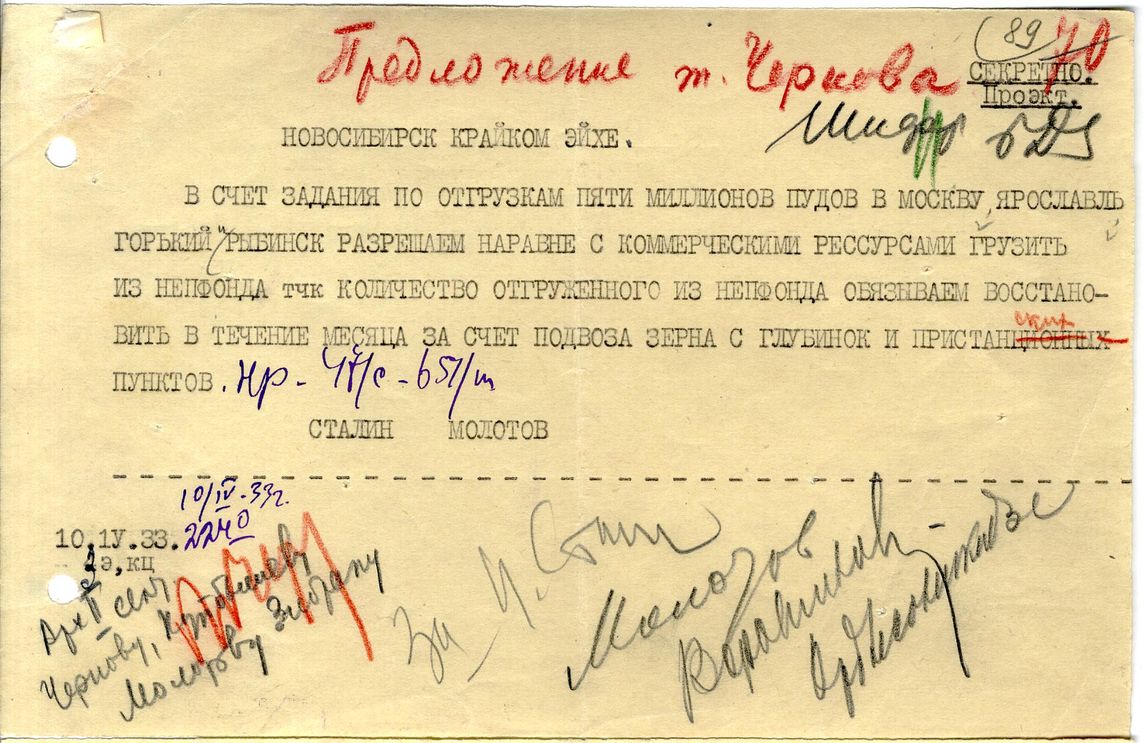 89 70
Предложение т. Чернова
СЕКРЕТНО.
Проэкт.
Шифр
НОВОСИБИРСК КРАЙКОМ ЭЙХЕ.
В СЧЕТ ЗАДАНИЯ ПО ОТГРУЗКАМ ПЯТИ МИЛЛИОНОВ ПУДОВ В МОСКВУ, ЯРОСЛАВЛЬ,
ГОРЬКИЙ, РЫБИНСК РАЗРЕШАЕМ НАРАВНЕ С КОММЕРЧЕСКИМИ РЕССУРСАМИ ГРУЗИТЬ
ИЗ НЕПФОНДА тчк КОЛИЧЕСТВО ОТГРУЖЕННОГО ИЗ НЕПФОНДА ОБЯЗЫВАЕМ ВОССТАНО-
ских
ВИТЬ В ТЕЧЕНИЕ МЕСЯЦА ЗА СЧЕТ ПОДВОЗА ЗЕРНА С ГЛУБИНОК И ПРИСТАНЦИОННЫХ
ПУНКТОВ. Нр-47/с-651/ш
СТАЛИН МОЛОТОВ
10/IV-33г.
22 40
10.1У.33.
э,кц
За И. Сталин
Молотов
Ворошилов
Орджоникидзе
Чернову, Куйбышеву
Молотову